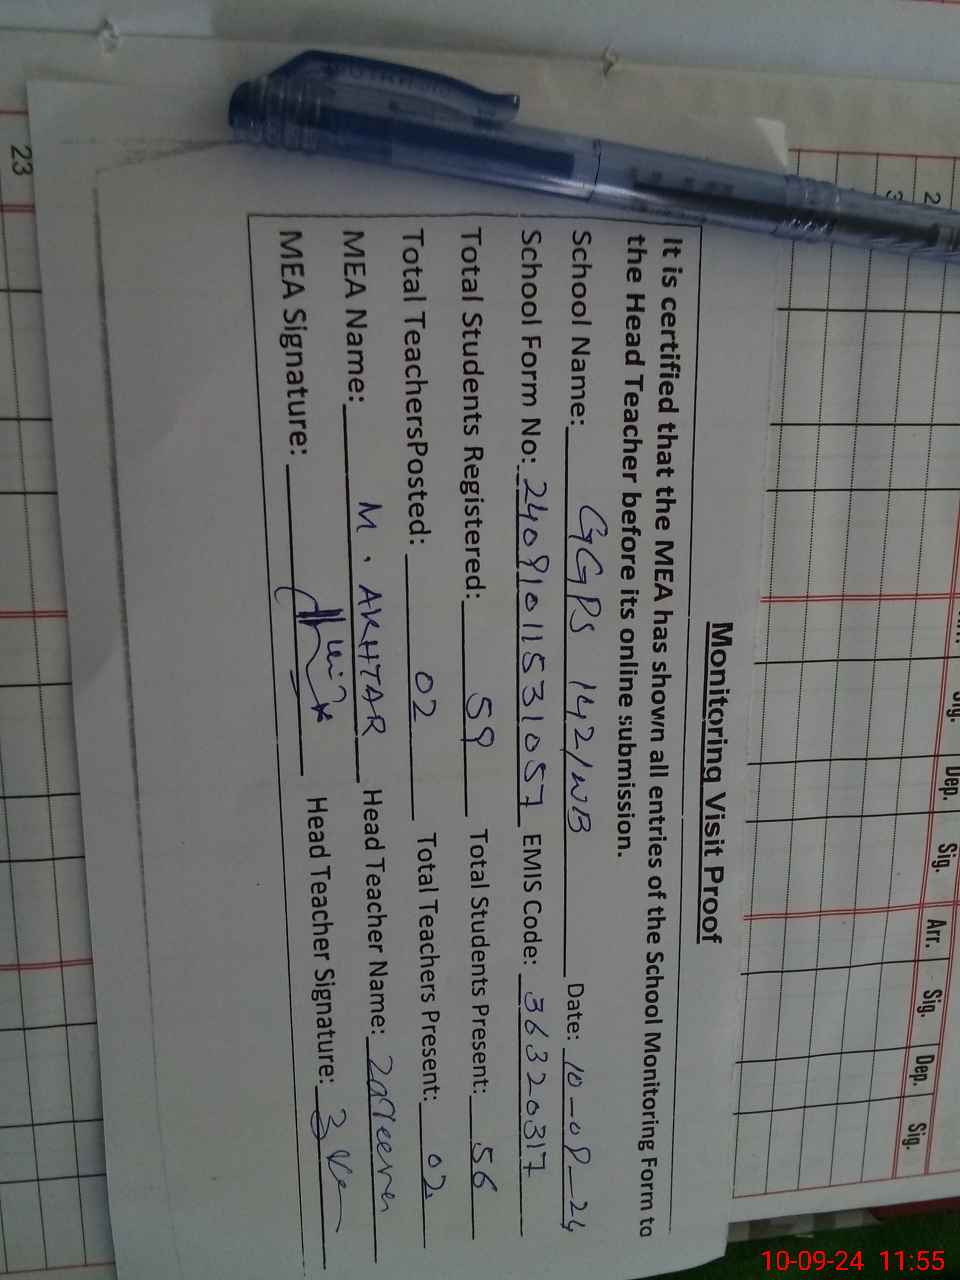 Monitoring Visit Proof
It is certified that the MEA has shown all entries of the School Monitoring Form to
the Head Teacher before its online submission.
School Name: GGPS 142/WB Date: 10-09-24
School Form No: 24091011531057 EMIS Code: 36320317
Total Students Registered: 59 Total Students Present: 56
Total TeachersPosted: 02 Total Teachers Present: 02
MEA Name: M. AKHTAR Head Teacher Name: Zareena
MEA Signature: Head Teacher Signature:
Sig. Dep. Sig. Arr. Sig. Dep. Sig.
2
3
23
10-09-24 11:55